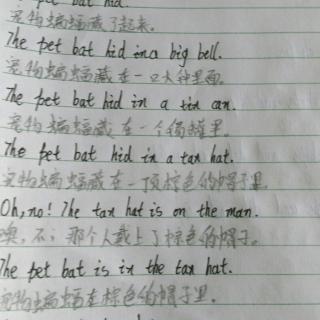 pet bat hid.
宠物蝙蝠藏了起来。
The pet bat hid in a big bell.
宠物蝙蝠藏在一口大钟里面。
The pet bat hid in a tin can.
宠物蝙蝠藏在一个锡罐里。
The pet bat hid in a tan hat.
宠物蝙蝠藏在一顶棕色的帽子里。
Oh, no! The tan hat is on the man.
噢,不,那个人戴上了棕色的帽子。
The pet bat is in the tan hat.
宠物蝙蝠在棕色的帽子里。